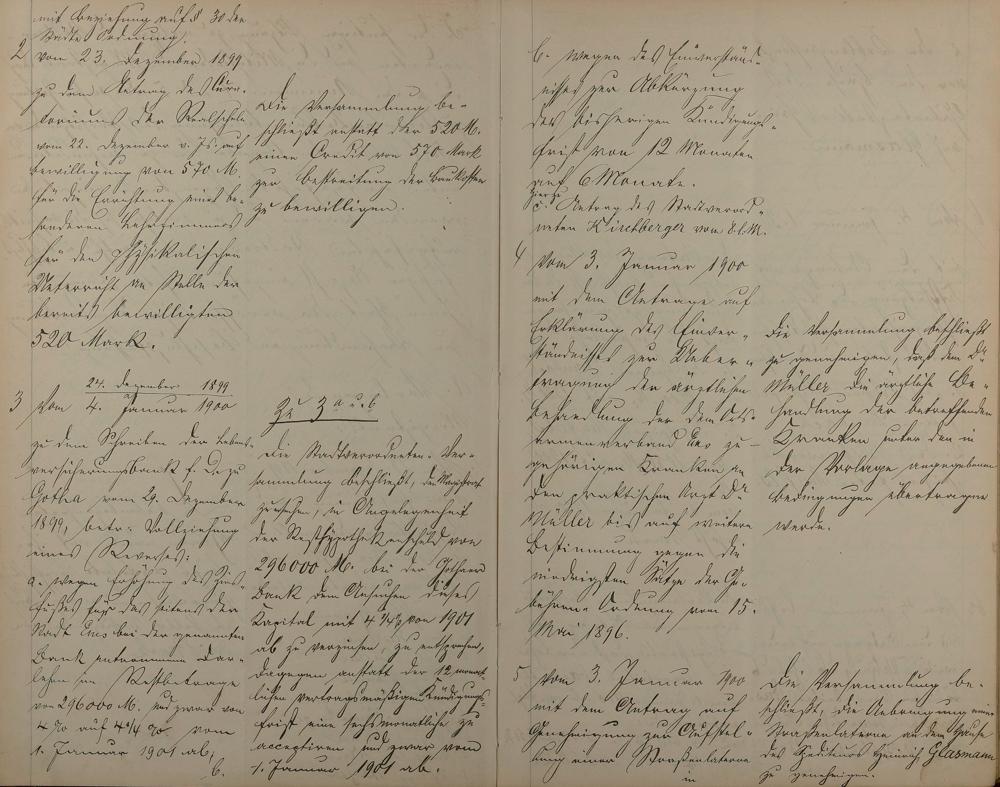 mit Beziehung auf § 30 der
Städte Ordnung.
2 vom 23. Dezember 1899
zu dem Antrag des Cura-
toriums der Realschule
vom 22. Dezember v. Js. auf
Bewilligung von 570 M.
für die Errichtung eines be-
sonderen Lehrzimmers
für den physikalischen
Unterricht an Stelle der
bereits bewilligten
520 Mark.
Die Versammlung be-
schließt anstatt der 520 M.
einen Credit von 570 Mark
zur Bestreitung der Baukosten
zu bewilligen.
24. Dezember 1899
3 vom 4. Januar 1900
zu dem Schreiben der Lebens-
versicherungsbank f. D. zu
Gotha vom 29. Dezember
1899, betr: Vollziehung
eines Reverses:
a. wegen Erhöhung des Zins-
fußes für das seitens der
Stadt Ems bei der genannten
Bank entnommene Dar-
lehn im Restbetrage
von 296000 M. und zwar von
4 % auf 4 1/4 % vom
1. Januar 1901 ab,
b.
Zu 3 a u. b
Die Stadtverordneten-Ver-
sammlung beschließt, den Magistrat
zu ersuchen, in Angelegenheit
der Resthypothekenschuld von
296000 M. bei der Gothaer
Bank dem Ansuchen dieses
Kapital mit 4 1/4 % von 1901
ab zu verzinsen, zu entsprechen,
dagegen anstatt der 12 monat-
lichen vertragsmäßigen Kündigungs-
frist eine sechsmonatliche zu
acceptiren, und zwar vom
1. Januar 1901 ab.
b. wegen des Einverständ-
nisses zur Abkürzung
der bisherigen Kündigungs-
frist von 12 Monaten
auf 6 Monate.
Hierzu
c. Antrag des Stadtverord-
neten Kirchberger vom 8. l. M.
4 vom 3. Januar 1900
mit dem Antrage auf
Erklärung des Einver-
ständnisses zur Ueber-
tragung der ärztlichen
Behandlung der dem Orts-
armenverband Ems zu-
gehörigen Kranken an
den praktischen Arzt Dr
Müller bis auf weitere
Bestimmung gegen die
niedrigsten Sätze der Ge-
bühren-Ordnung vom 15.
Mai 1896.
Die Versammlung beschließt
zu genehmigen, daß dem Dr
Müller die ärztliche Be-
handlung der betreffenden
Kranken unter den in
der Vorlage angegebenen
Bedingungen übertragen
werde.
5 vom 3. Januar 900
mit dem Antrag auf
Genehmigung zur Aufstel-
lung einer Straßenlaterne
in
Die Versammlung be-
schließt, die Anbringung einer
Straßenlaterne an dem Hause
des Spediteurs Heinrich Glasmann
zu genehmigen.